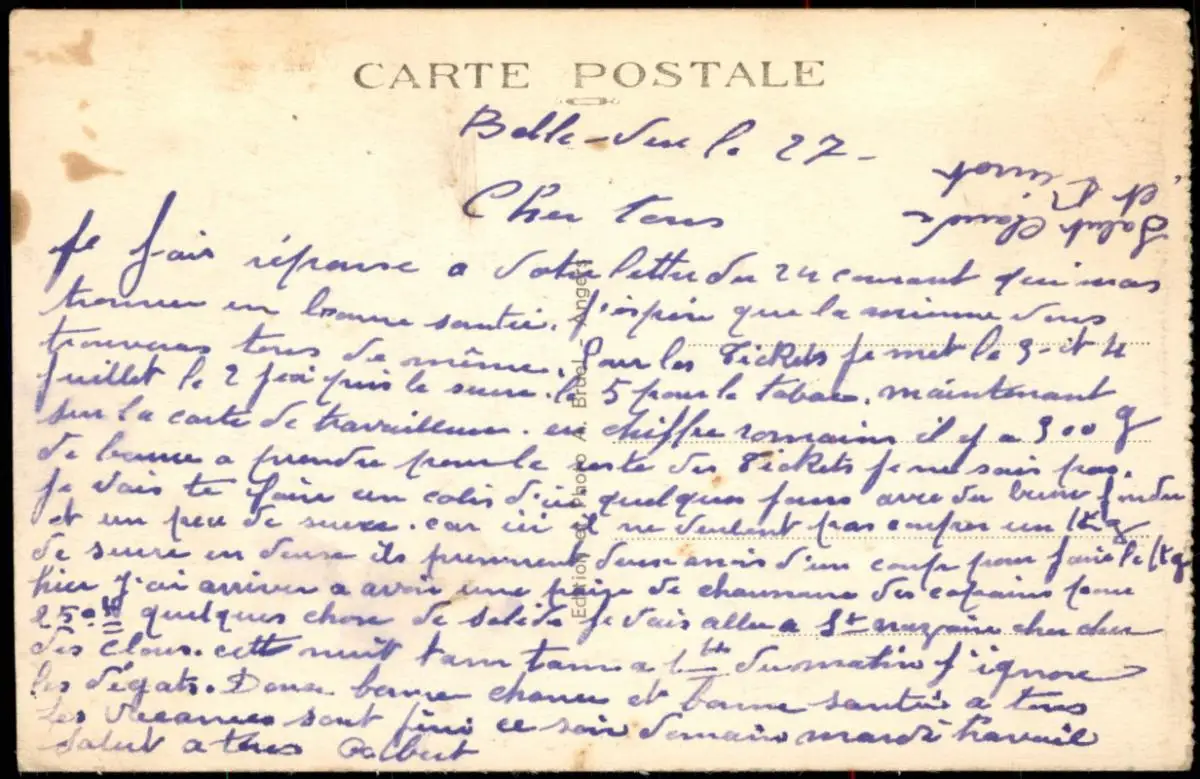 CARTE POSTALE
Belle-Vue le 27-
Cher tous
Salut Claude
et
Je fais réponse a votre lettre du 24 courant qui mas
trouver en bonne santée. J'espère que la mienne vous
trouveras tous de même. Pour les Tickets je met le 3-et 4
Juillet le 2 puis le sucre. le 5 pour le tabac. maintenant
sur la carte de travailleur. en chiffre romains il y a 300 g
de a prendre pour le reste des Tickets je ne sais pas.
Je vais te faire un colis d'ici quelques jours avec du
et un peu de sucre. car ici il ne veulent pas couper un Kg
de sucre en deux ils prennent deux mois d'un coup pour faire le Kg
hier j'ai arriver a avoir une paire de chaussure des copains pour
250 quelques chose de solide je vais aller a St nazaire chercher
des clous. cette nuit tam tam a 1h du matin j'ignore
les dégats. Donc bonne chance et bonne santée a tous
les vacances sont fini ce soir demain mardi travail
Salut a tous Albert
Edition et Photo A. Bruel - Angers